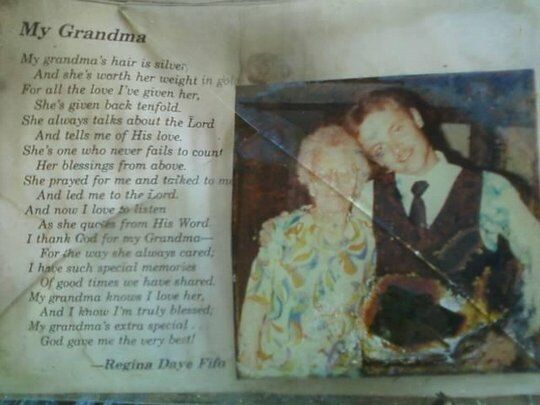 My Grandma
My grandma's hair is silver,
And she's worth her weight in gold
For all the love I've given her,
She's given back tenfold.
She always talks about the Lord
And tells me of His love.
She's one who never fails to count
Her blessings from above.
She prayed for me and talked to me
And led me to the Lord.
And now I love to listen
As she quotes from His Word.
I thank God for my Grandma—
For the way she always cared;
I have such special memories
Of good times we have shared.
My grandma knows I love her,
And I know I'm truly blessed;
My grandma's extra special . . .
God gave me the very best!
—Regina Daye Fifo